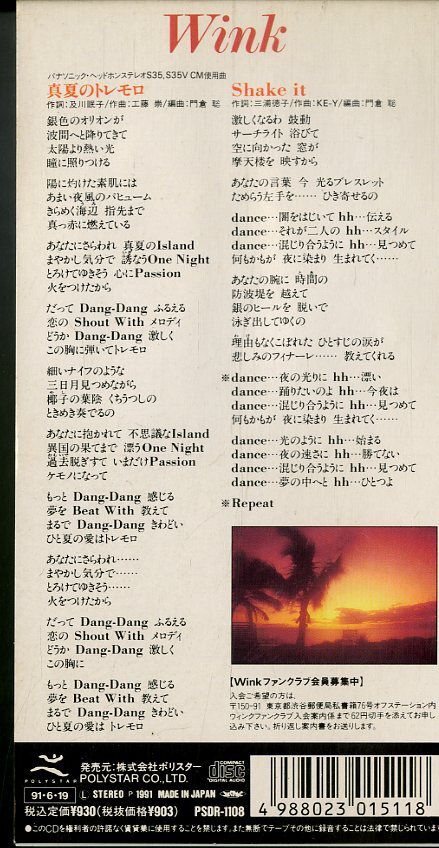 Wink
パナソニック・ヘッドホンステレオS35,S35V CM使用曲
真夏のトレモロ
作詞:及川眠子/作曲:工藤 崇/編曲:門倉 聡
銀色のオリオンが
波間へと降りてきて
太陽より熱い光
瞳に照りつける
陽に灼けた素肌には
あまい夜風のパヒューム
きらめく海辺 指先まで
真っ赤に燃えている
あなたにさらわれ 真夏のIsland
まやかし気分で 誘なうOne Night
とろけてゆきそう 心にPassion
火をつけたから
だって Dang-Dang ふるえる
恋の Shout With メロディ
どうか Dang-Dang 激しく
この胸に弾いてトレモロ
細いナイフのような
三日月見つめながら
椰子の葉陰 くちうつしの
ときめき奏でるの
あなたに抱かれて 不思議なIsland
異国の果てまで 漂うOne Night
過去脱ぎすて いまだけPassion
ケモノになって
もっと Dang-Dang 感じる
夢を Beat With 教えて
まるで Dang-Dang きわどい
ひと夏の愛はトレモロ
あなたにさらわれ……
まやかし気分で……
とろけてゆきそう……
火をつけたから
だって Dang-Dang ふるえる
恋の Shout With メロディ
どうか Dang-Dang 激しく
この胸に
もっと Dang-Dang 感じる
夢を Beat With 教えて
まるで Dang-Dang きわどい
ひと夏の愛はトレモロ
Shake it
作詞:三浦徳子/作曲:KE-Y/編曲:門倉 聡
激しくなるわ 鼓動
サーチライト 浴びて
空に向かった 窓が
摩天楼を 映すから
あなたの言葉 今 光るブレスレット
ためらう左手を…… ひき寄せるの
dance…闇をはじいて hh…伝える
dance…それが二人の hh…スタイル
dance…混じり合うように hh…見つめて
何もかもが 夜に染まり 生まれてく……
あなたの腕に 時間の
防波堤を 越えて
銀のヒールを 脱いで
泳ぎ出してゆくの
理由もなくこぼれた ひとすじの涙が
悲しみのフィナーレ…… 教えてくれる
※dance…夜の光りに hh…漂い
dance…踊りたいのよ hh…今夜は
dance…混じり合うように hh…見つめて
何もかもが 夜に染まり 生まれてく……
dance…光のように hh…始まる
dance…夜の速さに hh…勝てない
dance…混じり合うように hh…見つめて
dance…夢の中へと hh…ひとつよ
※Repeat
【Winkファンクラブ会員募集中】
入会ご希望の方は、
〒150-91 東京都渋谷郵便局私書箱76号オフステーション内
ウィンクファンクラブ入会案内係まで62円切手を添えてお申し
込み下さい。折り返し案内書をお送りします。
POLYSTAR
発売元:株式会社ポリスター
POLYSTAR CO.,LTD.
COMPACT
disc
DIGITAL AUDIO
91・6・19
Ⓛ STEREO Ⓟ 1991 MADE IN JAPAN
税込定価¥930(税抜価格¥903)
PSDR-1108
4 988023 015118
●このCDを権利者の許諾なく賃貸業に使用することを禁じます。また無断でテープその他に録音することは法律で禁じられていま